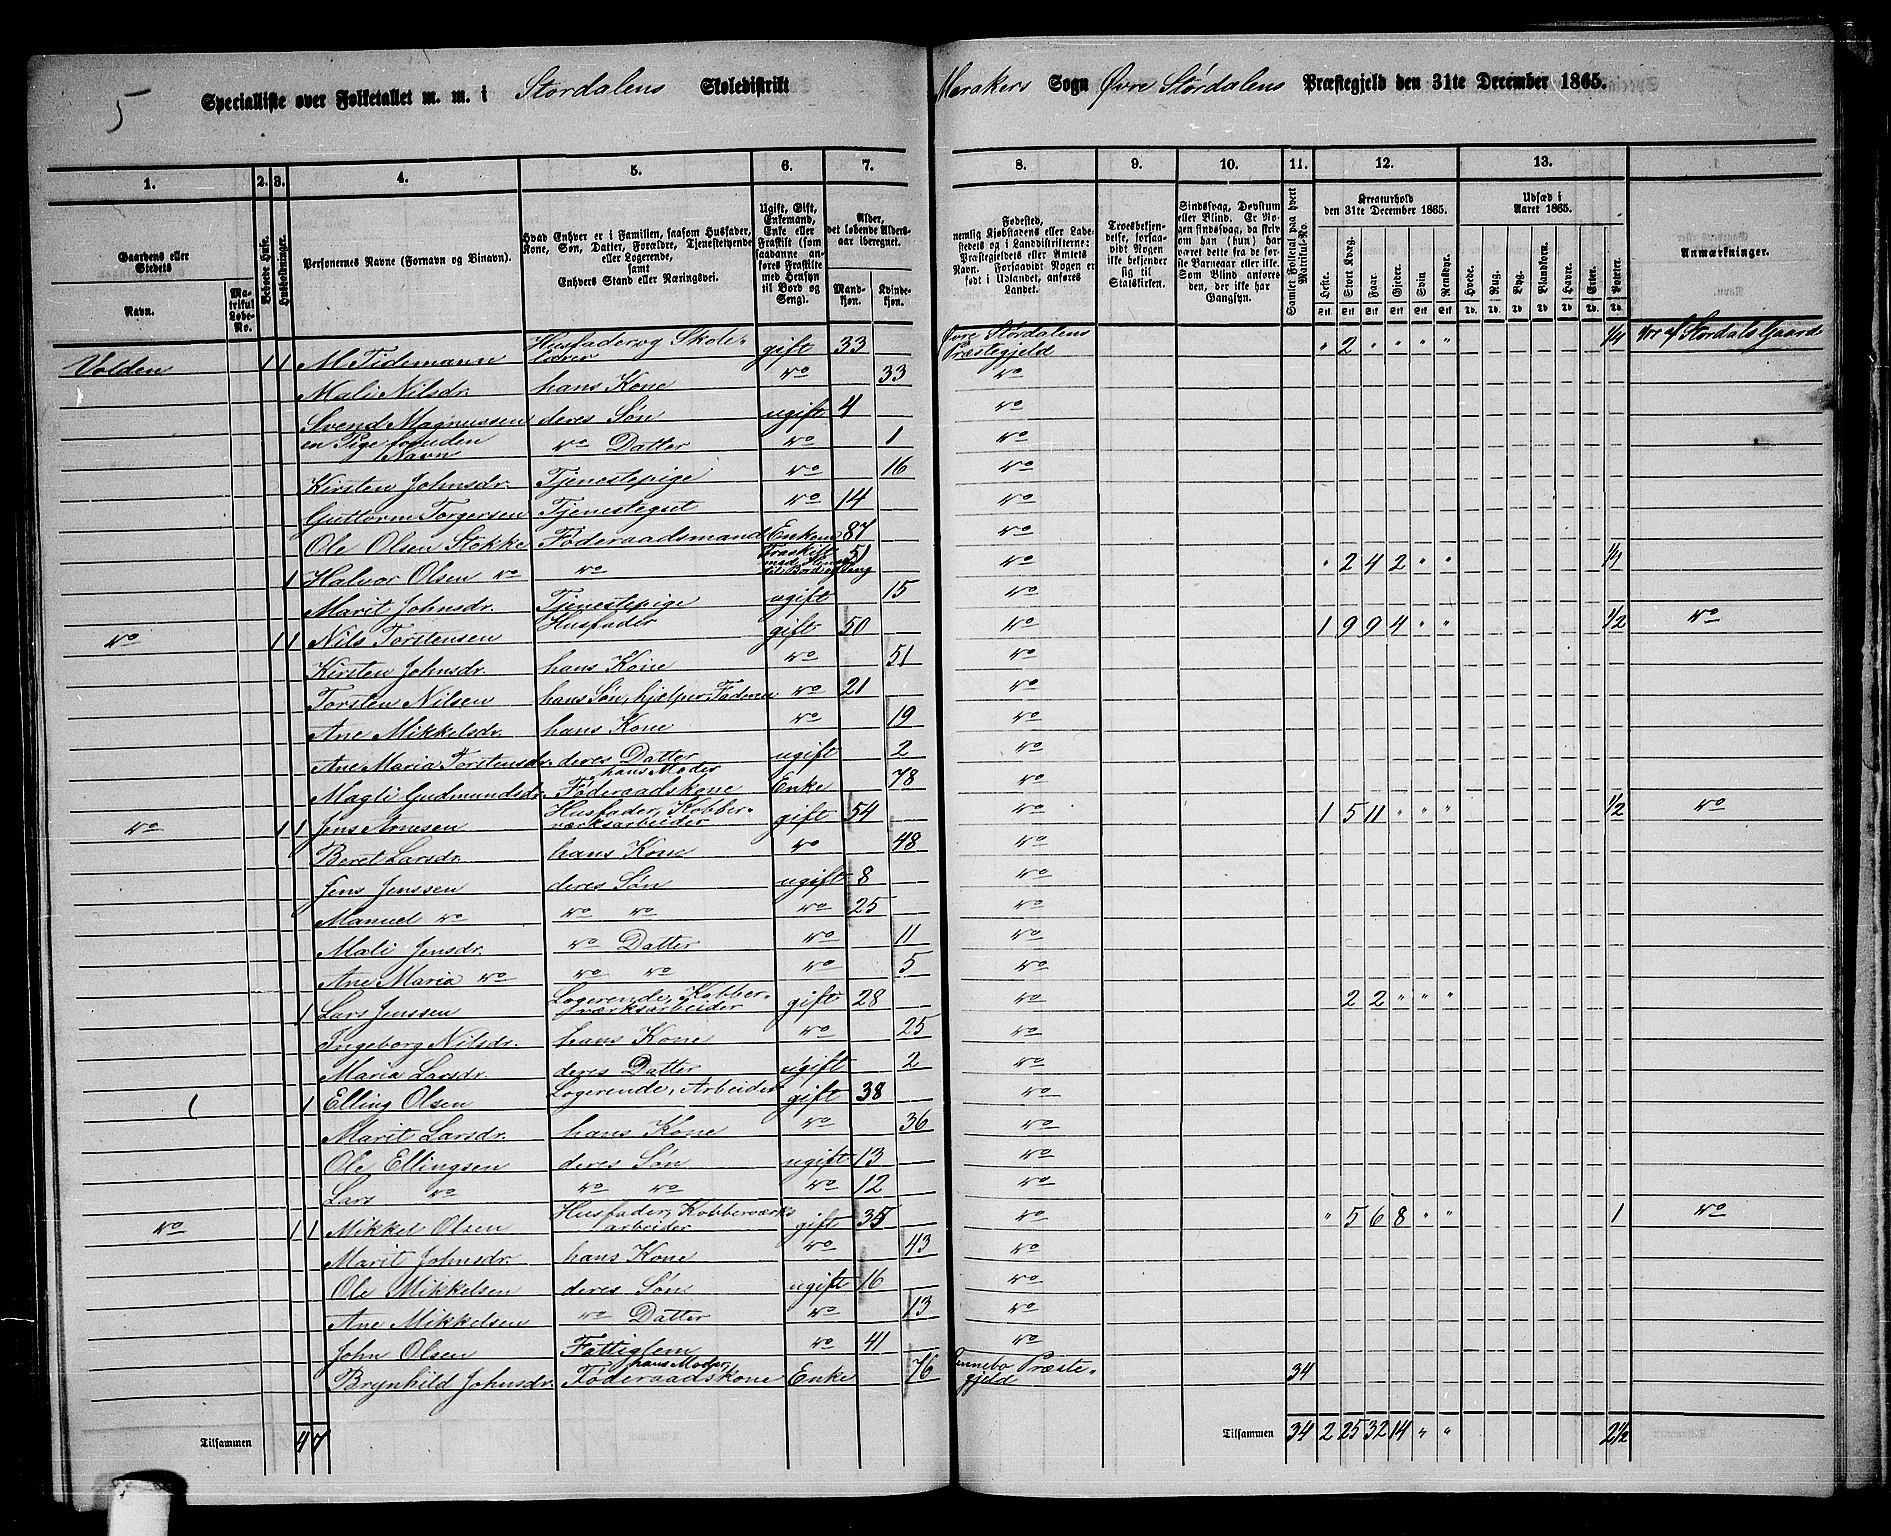 5
Specialliste over Folketallet m. m. i Stordalens Skoledistrikt Merakers Sogn Øvre Størdalens Præstegjeld den 31te December 1865.
1. 2. 3. 4. 5. 6. 7. 8. 9. 10. 11. 12. 13.
Gaardens eller Stedets
Navn.
Matrikul Løbe-No.
Beboede Huse.
Husholdninger.
Personernes Navne (Fornavn og Binavn).
Hvad Enhver er i Familien, saasom Husfader, Kone, Søn, Datter, Forældre, Tjenestetyende eller Logerende, samt Enhvers Stand eller Næringsvei.
Ugift, Gift, Enkemand, Enke eller Fraskilt (som saadanne anføres Fraskilte med Hensyn til Bord og Seng)
Alder, det løbende Aldersaar iberegnet.
Mandkjøn. Kvindekjøn.
Fødested, nemlig Kjøbstadens eller Ladestedets og i Landdistrikterne: Præstegjeldets eller Amtets Navn. Forsaavidt Nogen er født i Udlandet, anføres Landet.
Troesbekjendelse, forsaavidt Nogen ikke bekjender sig til Statskirken.
Sindssvag, Døvstum eller Blind. Er Nogen sindssvag, da skrives om han (hun) har været dette fra de første Barneaar eller ikke. Som Blind anføres den, der ikke har Gangsyn.
Samlet Folketal paa hvert Matrikul-No.
Kreaturhold den 31te December 1865.
Heste. Stort Kvæg. Faar. Gjeder. Svin. Rensdyr.
Udsæd i Aaret 1865.
Hvede. Rug. Byg. Blandkorn. Havre. Erter. Poteter.
Anmærkninger.
Volden 1 1 M Tidemann Husfader og Skolelærer gift 33 Øvre Stordalens Præstegjeld " 2 " " " " 1/4
Mali Nilsdr. hans Kone do 33 do
Svend Magnussen deres Søn ugift 4 do
en Pige foruden Navn do Datter do 1 do
Kirsten Johnsdr. Tjenestepige do 16 do
Guttorm Torgersen Tjenestegut do 14 do
Ole Olsen Stokke Føderaadsmand Enkem 87 do
1 Halvor Olsen do do 51 do " 2 4 2 " "
Marit Johnsdr. Tjenestepige ugift 15 do
do 1 1 Nils Torstensen Husfader gift 50 do 1 9 9 4 " " 1/2 do
Kirsten Johnsdr. hans Kone do 51 do
Torsten Nilsen hans Søn, hjelper Faderen do 21 do
Ane Mikkelsdr. hans Kone do 19 do
Ane Maria Torstensdr. deres Datter ugift 2 do
Magli Gudmundsdr. hans Moder Føderaadskone Enke 78 do
do 1 1 Jens Arnesen Husfader, Kobberværksarbeider gift 54 do 1 5 11 " " " 1/2 do
Beret Larsdr. hans Kone do 48 do
Jens Jenssen deres Søn ugift 8 do
Manuel do do do do 25 do
Mali Jensdr. do Datter do 11 do
Ane Maria do do do do 5 do
1 Lars Jenssen Logerende, Kobberværksarbeider gift 28 do 2 2 " " "
Ingeborg Nilsdr. hans Kone do 25 do
Maria Larsdr. deres Datter ugift 2 do
1 Elling Olsen Logerende, Arbeider gift 38 do
Marit Larsdr. hans Kone do 36 do
Ole Ellingsen deres Søn ugift 13 do
Lars do do do do 12 do
do 1 1 Mikkel Olsen Husfader, Kobberværksarbeider gift 35 do " 5 6 8 " " 1 do
Marit Johnsdr. hans Kone do 43 do
Ole Mikkelsen deres Søn ugift 16 do
Ane Mikkelsen do Datter do 13 do
John Olsen Fattiglem do 41 do
Brynhild Johnsdr. hans Moder, Føderaadskone Enke 76 Rennebo Præstegjeld 34
Tilsammen 4 7 Tilsammen 34 2 25 32 14 " " 2 1/2